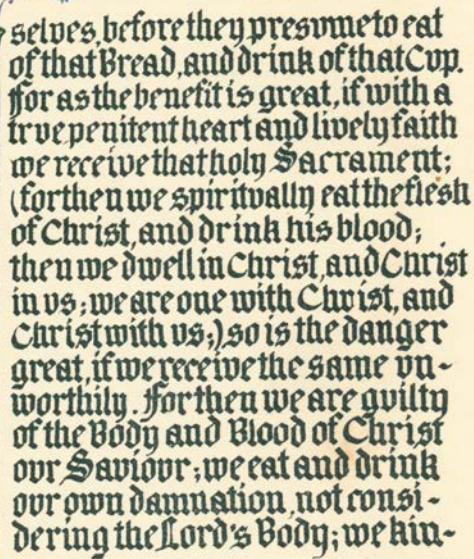 selves, before they presvme to eat
of that Bread, and drink of that Cvp.
For as the benefit is great, if with a
trve penitent heart and lively faith
we receive that holy Sacrament;
(for then we spiritvally eat the flesh
of Christ, and drink his blood;
then we dwell in Christ, and Christ
in vs; we are one with Christ, and
Christ with vs;) so is the danger
great, if we receive the same vn-
worthily. For then we are gvilty
of the Body and Blood of Christ
ovr Saviovr; we eat and drink
ovr own damnation, not consi-
dering the Lord's Body; we kin-